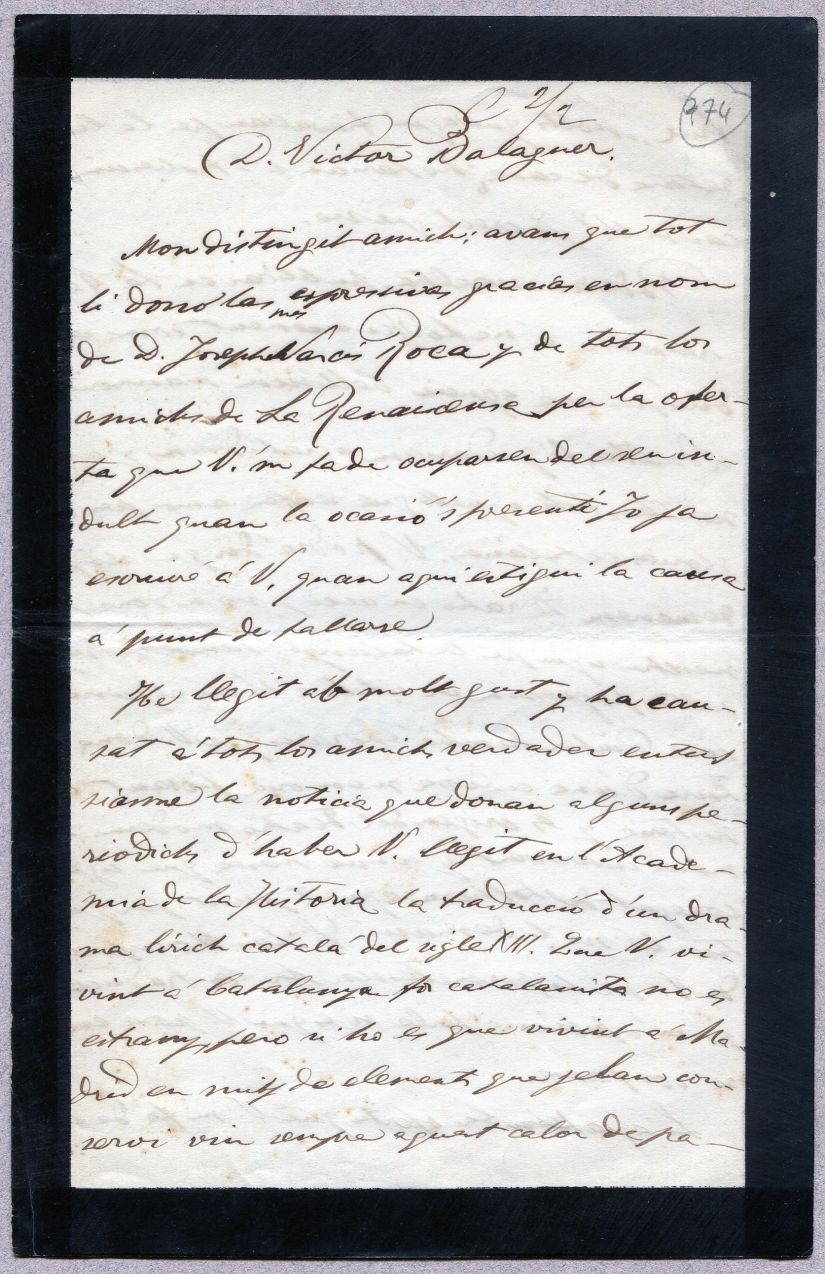 C 2/2
974
D. Victor Balaguer.
Mon distingit amich: avans que tot
li dono las mes espressivas gracias en nom
de D. Joseph Narcís Roca y de tots los
amichs de La Renaixensa per la ofer-
ta que V. 'm fa de ocuparsen del seu in-
dult quan la ocasió 's presenti. Jo ja
escriuré á V. quan aquí estigui la causa
á punt de fallarse.
He llegit ab molt gust y ha cau-
sat á tots los amichs verdader entus
siasme la noticia que donan alguns pe-
riodichs d'haber V. llegit en l'Acade-
mia de la Historia la traducció d'un dra-
ma lírich catalá del sigle XIII. Que V. vi-
vint á Catalunya fos catalanista no es
estrany, pero si ho es que vivint á Ma-
drid en mitj de elements que gelan con-
servi viu sempre aquest calor de pa-